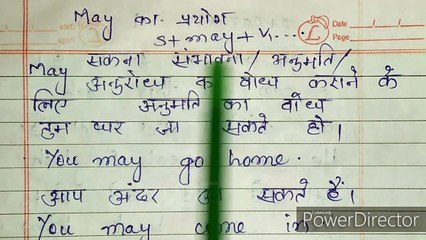 May का प्रयोग
S + may + V₁ ...
May सकना संभावना / अनुमति /
अनुरोध का बोध कराने के
लिए अनुमति का बोध
तुम घर जा सकते हो।
You may go home.
आप अंदर आ सकते हैं।
You may come in
Date
Page
PowerDirector